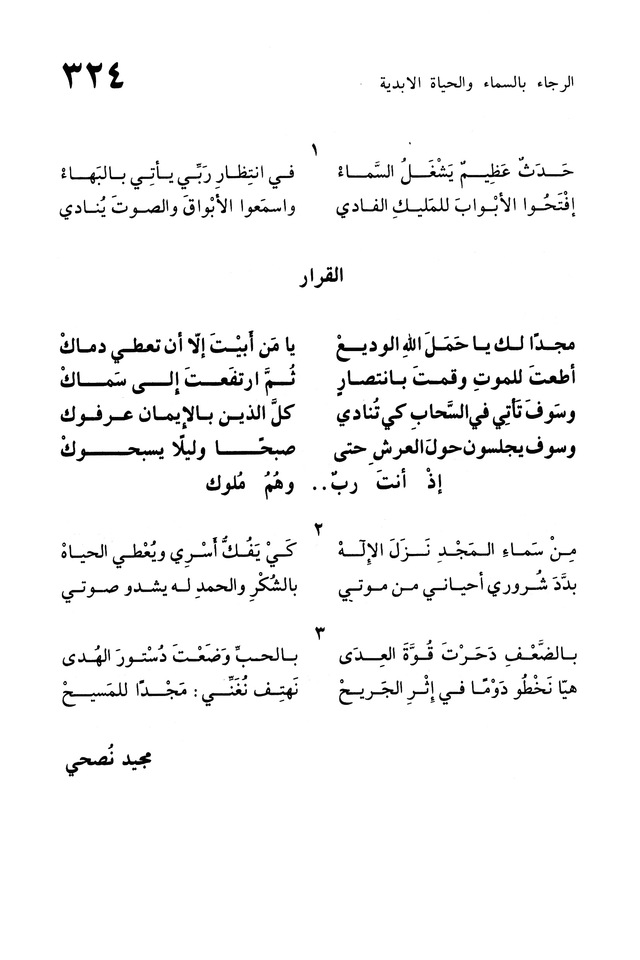 الرجاء بالسماء والحياة الابدية ٣٢٤
١
حَـدَثٌ عَظِيـمٌ يَشْغَـلُ السَّمـاءْ في انتِظارِ رَبِّي يـأتِـي بـالبَهـاءْ
إفْتَحُـوا الأبْـوابَ للمَليـكِ الفـادي واسمَعوا الأبْواقَ والصوتَ يُنادي
القرار
مجدًا لـك يـا حَمَـلَ اللهِ الوديـعْ يا مَن أَبَيْـتَ إلّا أن تعطي دماكْ
أطعتَ للموتِ وقمتَ بـانتصـارٍ ثُـمَّ ارتفَعـتَ إلـى سَمـاكْ
وسَوفَ تَأتِي في السَّحابِ كي تُنادي كلَّ الذين بـالإيمان عـرفـوك
وسوف يجلسون حولَ العرشِ حتى صبحًـا وليلًا يسبحـــوكْ
إذْ أنتَ ربٌ.. وهُمُ مُلوك
٢
مِـنْ سَماءِ الـمَجْـدِ نَـزَلَ الإلَـهْ كَـيْ يَفُـكَّ أَسْرِي ويُعْطي الحياهْ
بدَّدَ شُـروري أحيـاني مـن موتـي بالشُكْرِ والحمدِ لـه يشدو صـوتي
٣
بـالضَّعْـفِ دَحَـرْتَ قُـوَّةَ العِـدَى بـالحبِّ وَضَعْـتَ دُسْتـورَ الهُـدى
هيّا نَخْطُو دَوْمًا في إثْرِ الجَريـحْ نَهتِـف نُغَنِّـي: مَجْـدًا للمَسيـحْ
مجيد نُصحي